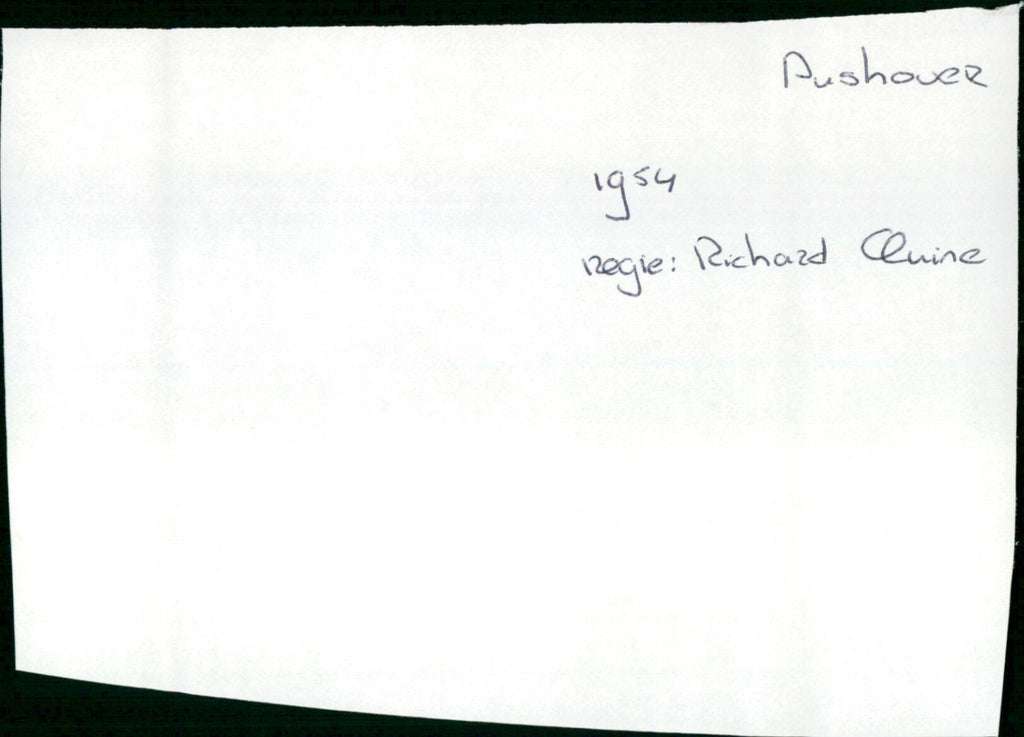 Pushover
1954
regie: Richard Quine